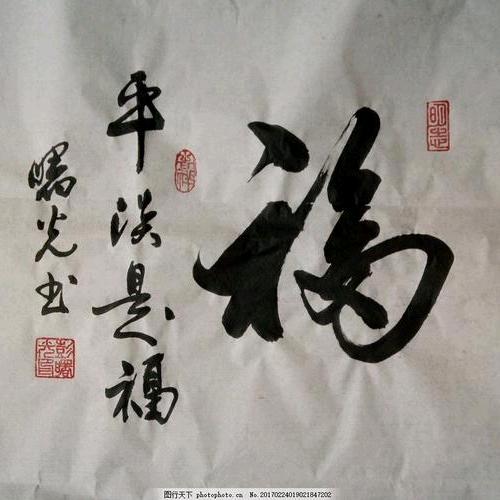 福
平淡是福
曙光书
图行天下 photophoto.cn No.20170224019021847202